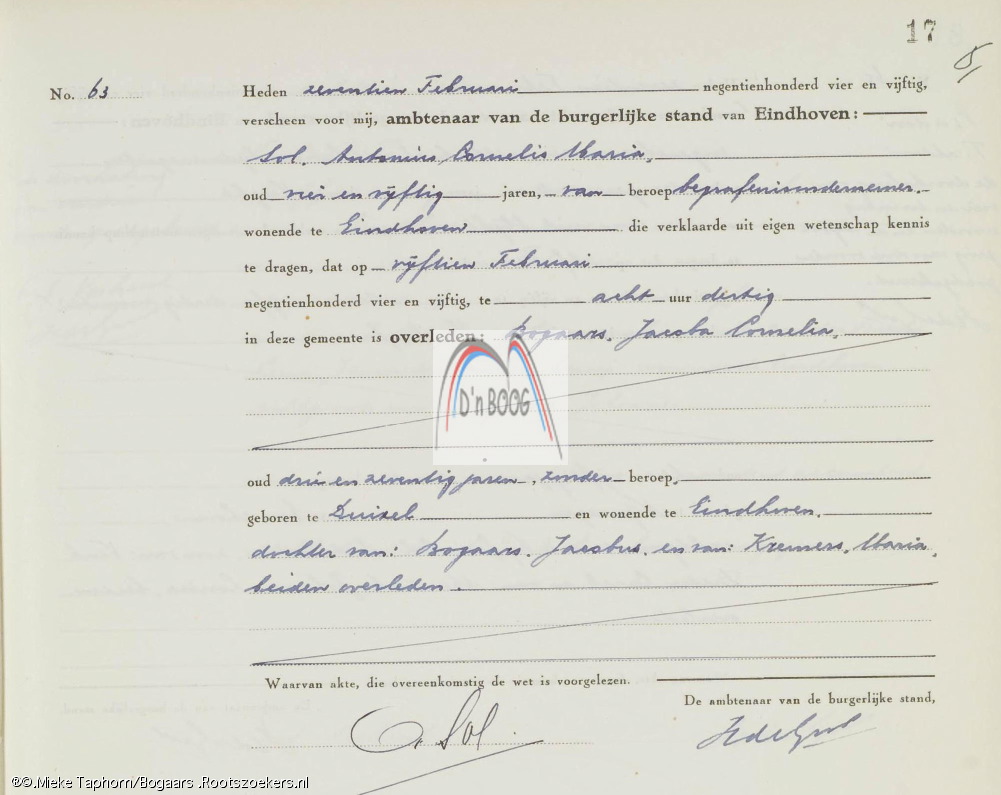 17
5
No. 63
Heden zeventien Februari negentienhonderd vier en vijftig,
verscheen voor mij, ambtenaar van de burgerlijke stand van Eindhoven:
Sol, Antonius Cornelis Maria,
oud vier en vijftig jaren, van beroep begrafenisondernemer,
wonende te Eindhoven die verklaarde uit eigen wetenschap kennis
te dragen, dat op vijftien Februari
negentienhonderd vier en vijftig, te acht uur dertig
in deze gemeente is overleden: Bogaars, Jacoba Cornelia,
D'n BOOG
oud drie en zeventig jaren, zonder beroep,
geboren te Duizel en wonende te Eindhoven,
dochter van: Bogaars, Jacobus, en van: Kremers, Maria,
beiden overleden.
Waarvan akte, die overeenkomstig de wet is voorgelezen.
De ambtenaar van de burgerlijke stand,
Sol
®©.Mieke Taphorn/Bogaars .Rootszoekers.nl